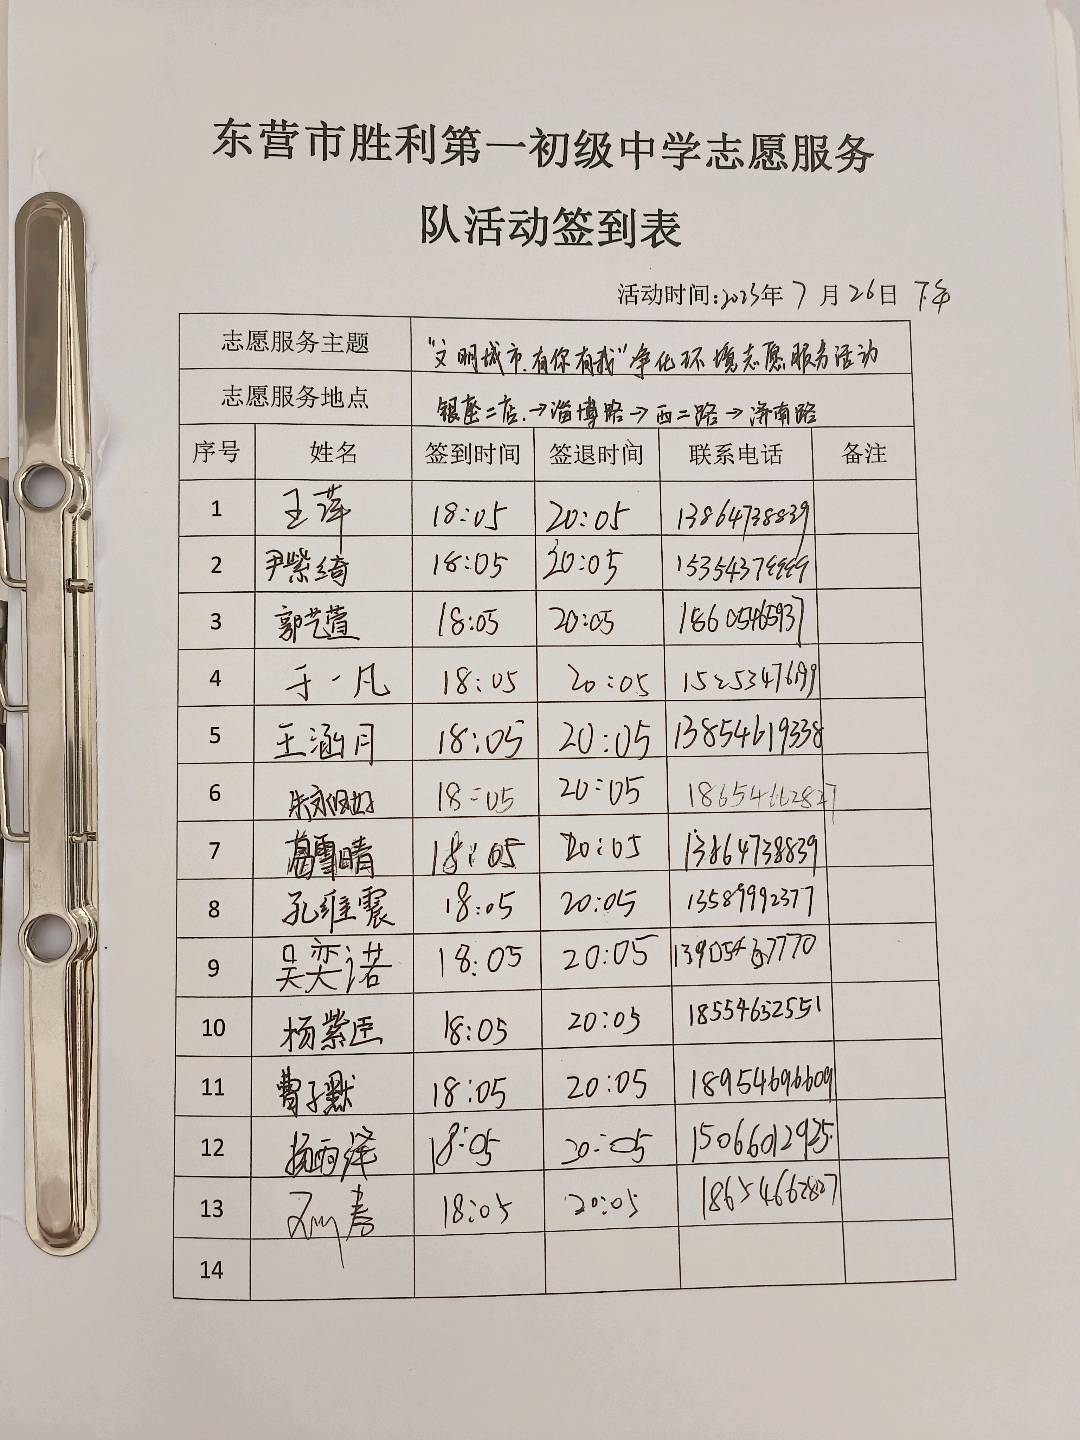 东营市胜利第一初级中学志愿服务
队活动签到表
活动时间:2023年 7 月 26 日 下午
志愿服务主题 “文明城市.有你有我”净化环境志愿服务活动
志愿服务地点 银座二店.→淄博路→西二路→济南路
序号 姓名 签到时间 签退时间 联系电话 备注
1 王萍 18:05 20:05 13864738839
2 尹紫绮 18:05 20:05
3 郭艺萱 18:05 20:05 18605465937
4 于一凡 18:05 20:05
5 王涵月 18:05 20:05 13854619338
6 18:05 20:05 18654662827
7 葛雪晴 18:05 20:05 13864738839
8 孔维震 18:05 20:05 13589992377
9 吴奕诺 18:05 20:05
10 杨紫臣 18:05 20:05 18554632551
11 曹子默 18:05 20:05 18954696609
12 杨雨泽 18:05 20:05 15066012925
13 18:05 20:05 18654662827
14